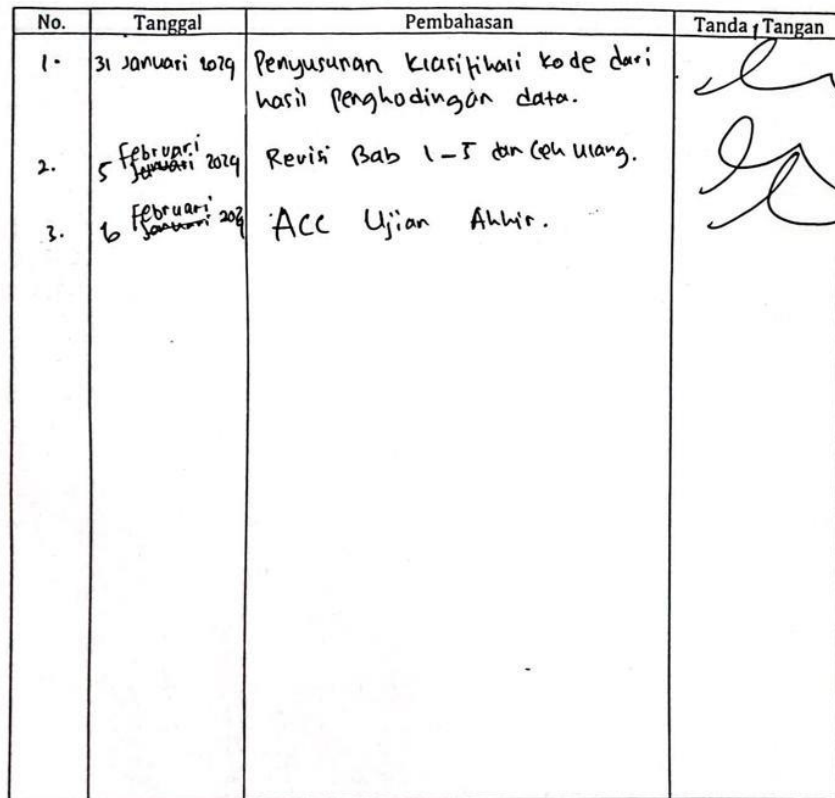 No. Tanggal Pembahasan Tanda Tangan
1. 31 Januari 2024 Penyusunan klasifikasi kode dari
hasil Pengkodingan data.
2. 5 Februari 2024 Revisi Bab 1-5 dan cek ulang.
Januari
3. 6 Februari 2024 ACC Ujian Akhir.
Januari